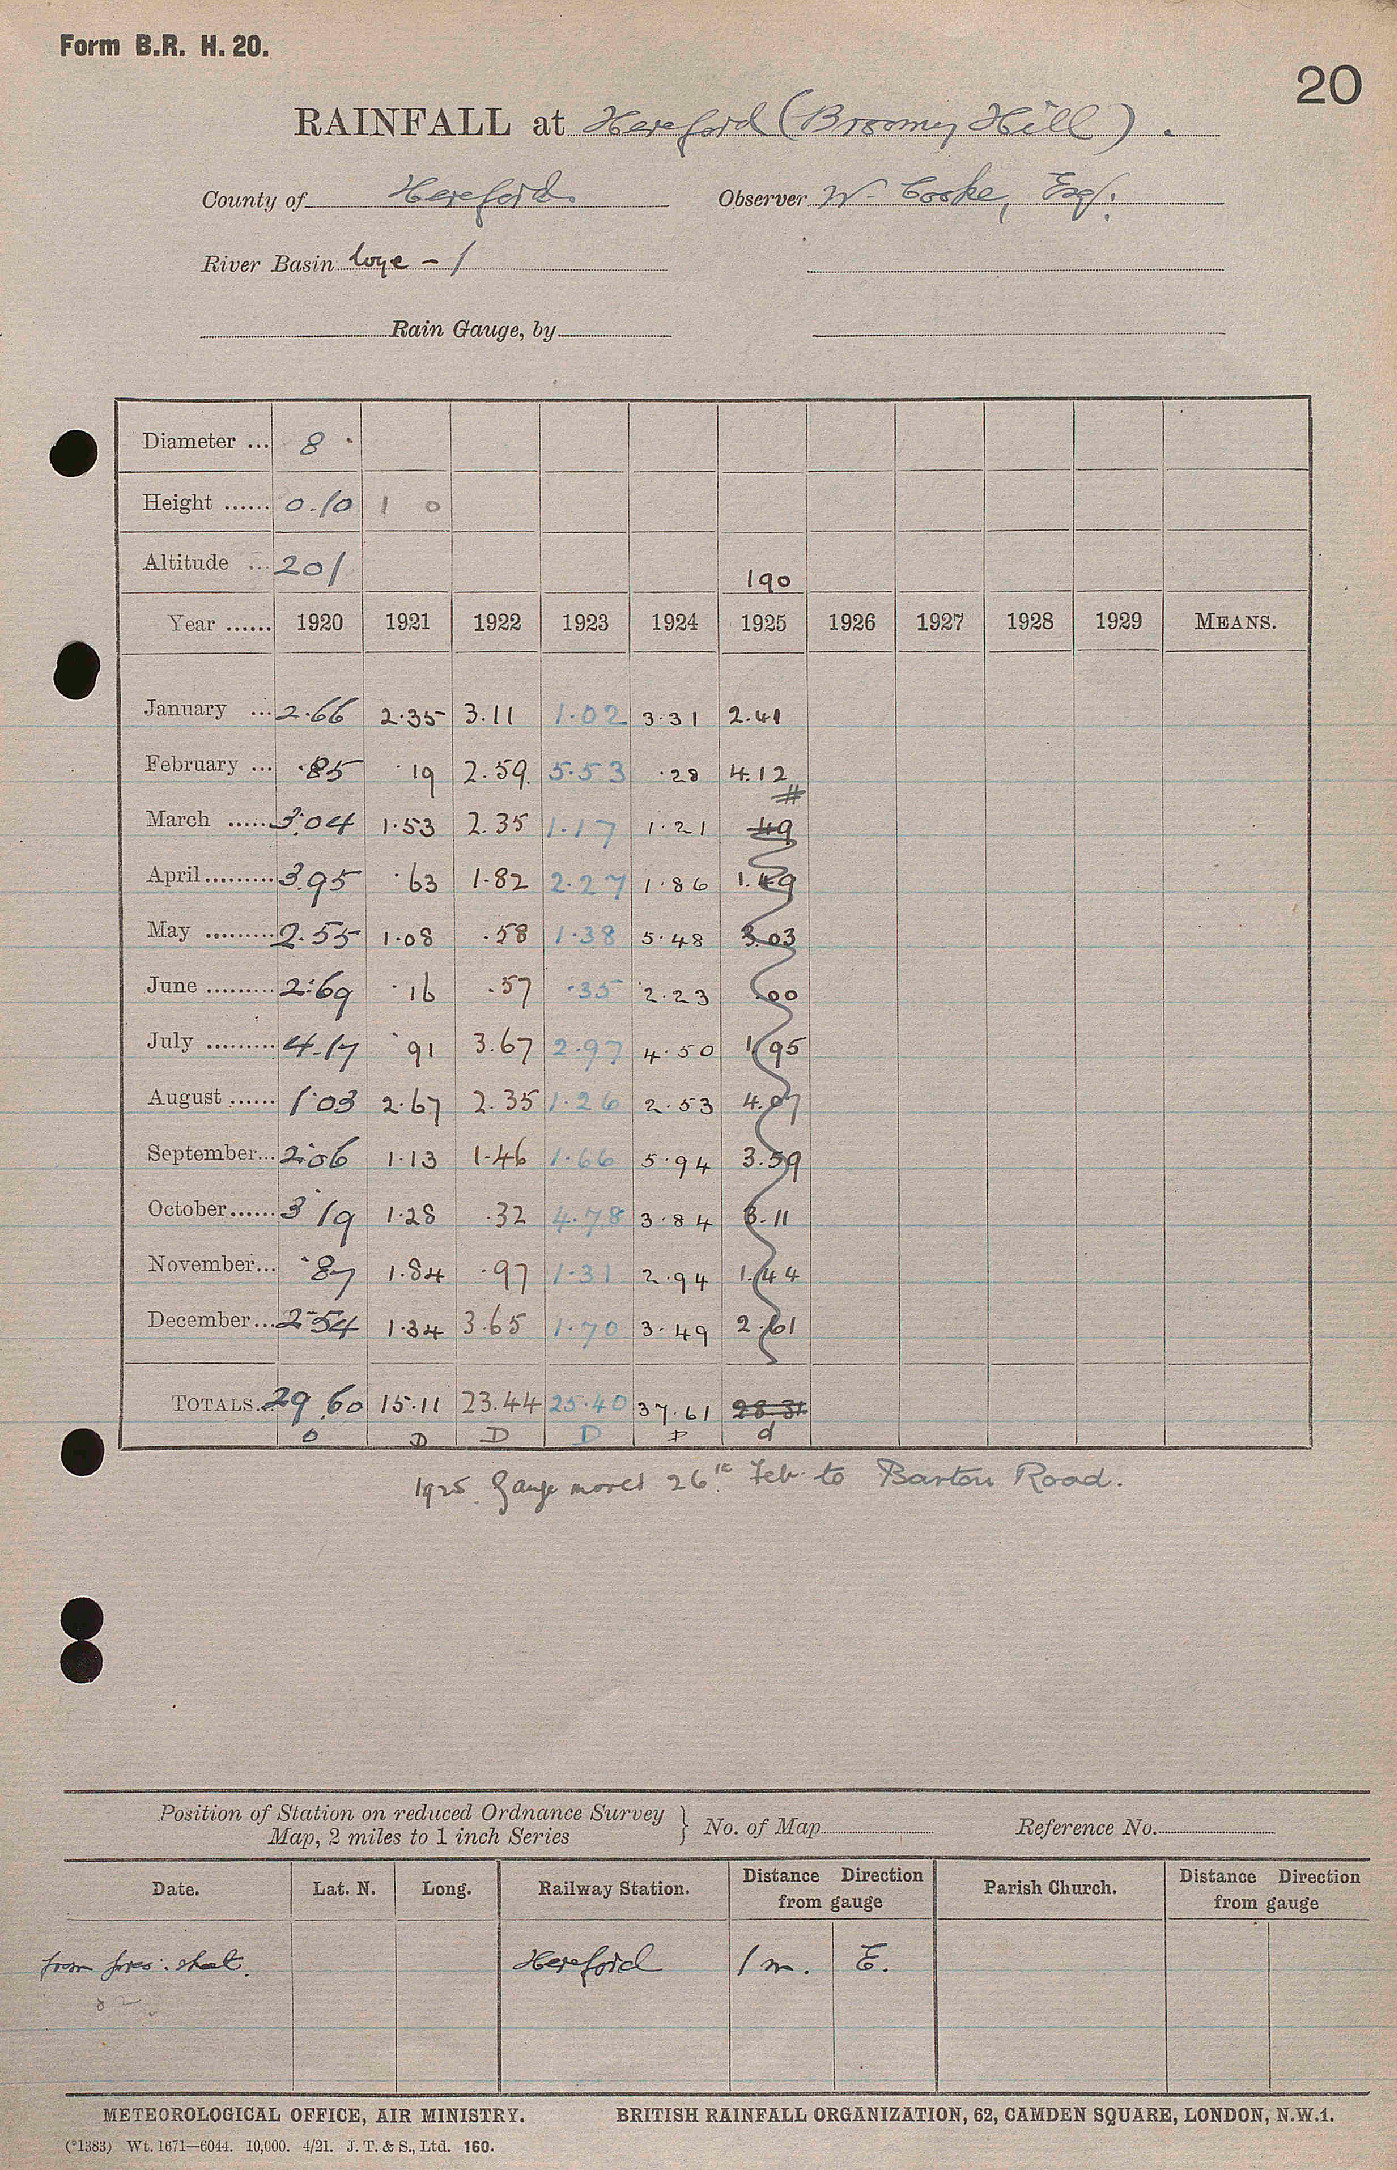 Form B.R. H. 20.
20
RAINFALL at Hereford (Broomy Hill).
County of Hereford. Observer W. Cooke, Esq:
River Basin Wye - 1
Rain Gauge, by
Diameter ... 8
Height ...... 0.10 1 0
Altitude ... 201 190
Year ...... 1920 1921 1922 1923 1924 1925 1926 1927 1928 1929 MEANS.
January ... 2.66 2.35 3.11 1.02 3.31 2.41
February ... .85 .19 2.59 5.53 .28 4.12
March ...... 3.04 1.53 2.35 1.17 1.21 .49
April ......... 3.95 .63 1.82 2.27 1.86 1.49
May ......... 2.55 1.08 .58 1.38 5.48 3.03
June ......... 2.69 .16 .57 .35 2.23 .00
July ......... 4.17 .91 3.67 2.97 4.50 1.95
August ...... 1.03 2.67 2.35 1.26 2.53 4.07
September... 2.06 1.13 1.46 1.66 5.94 3.59
October...... 3.19 1.28 .32 4.78 3.84 3.11
November... .87 1.84 .97 1.31 2.94 1.44
December... 2.54 1.34 3.65 1.70 3.49 2.61
TOTALS... 29.60 15.11 23.44 25.40 37.61 28.31
D D D D D d
1925. Gauge moved 26th Feb. to Barton Road.
Position of Station on reduced Ordnance Survey
Map, 2 miles to 1 inch Series } No. of Map Reference No.
Date. Lat. N. Long. Railway Station. Distance Direction from gauge Parish Church. Distance Direction from gauge
from prev: sheet. Hereford 1 m. E.
METEOROLOGICAL OFFICE, AIR MINISTRY. BRITISH RAINFALL ORGANIZATION, 62, CAMDEN SQUARE, LONDON, N.W.1.
(*1383) Wt. 1671—6044. 10,000. 4/21. J. T. & S., Ltd. 160.